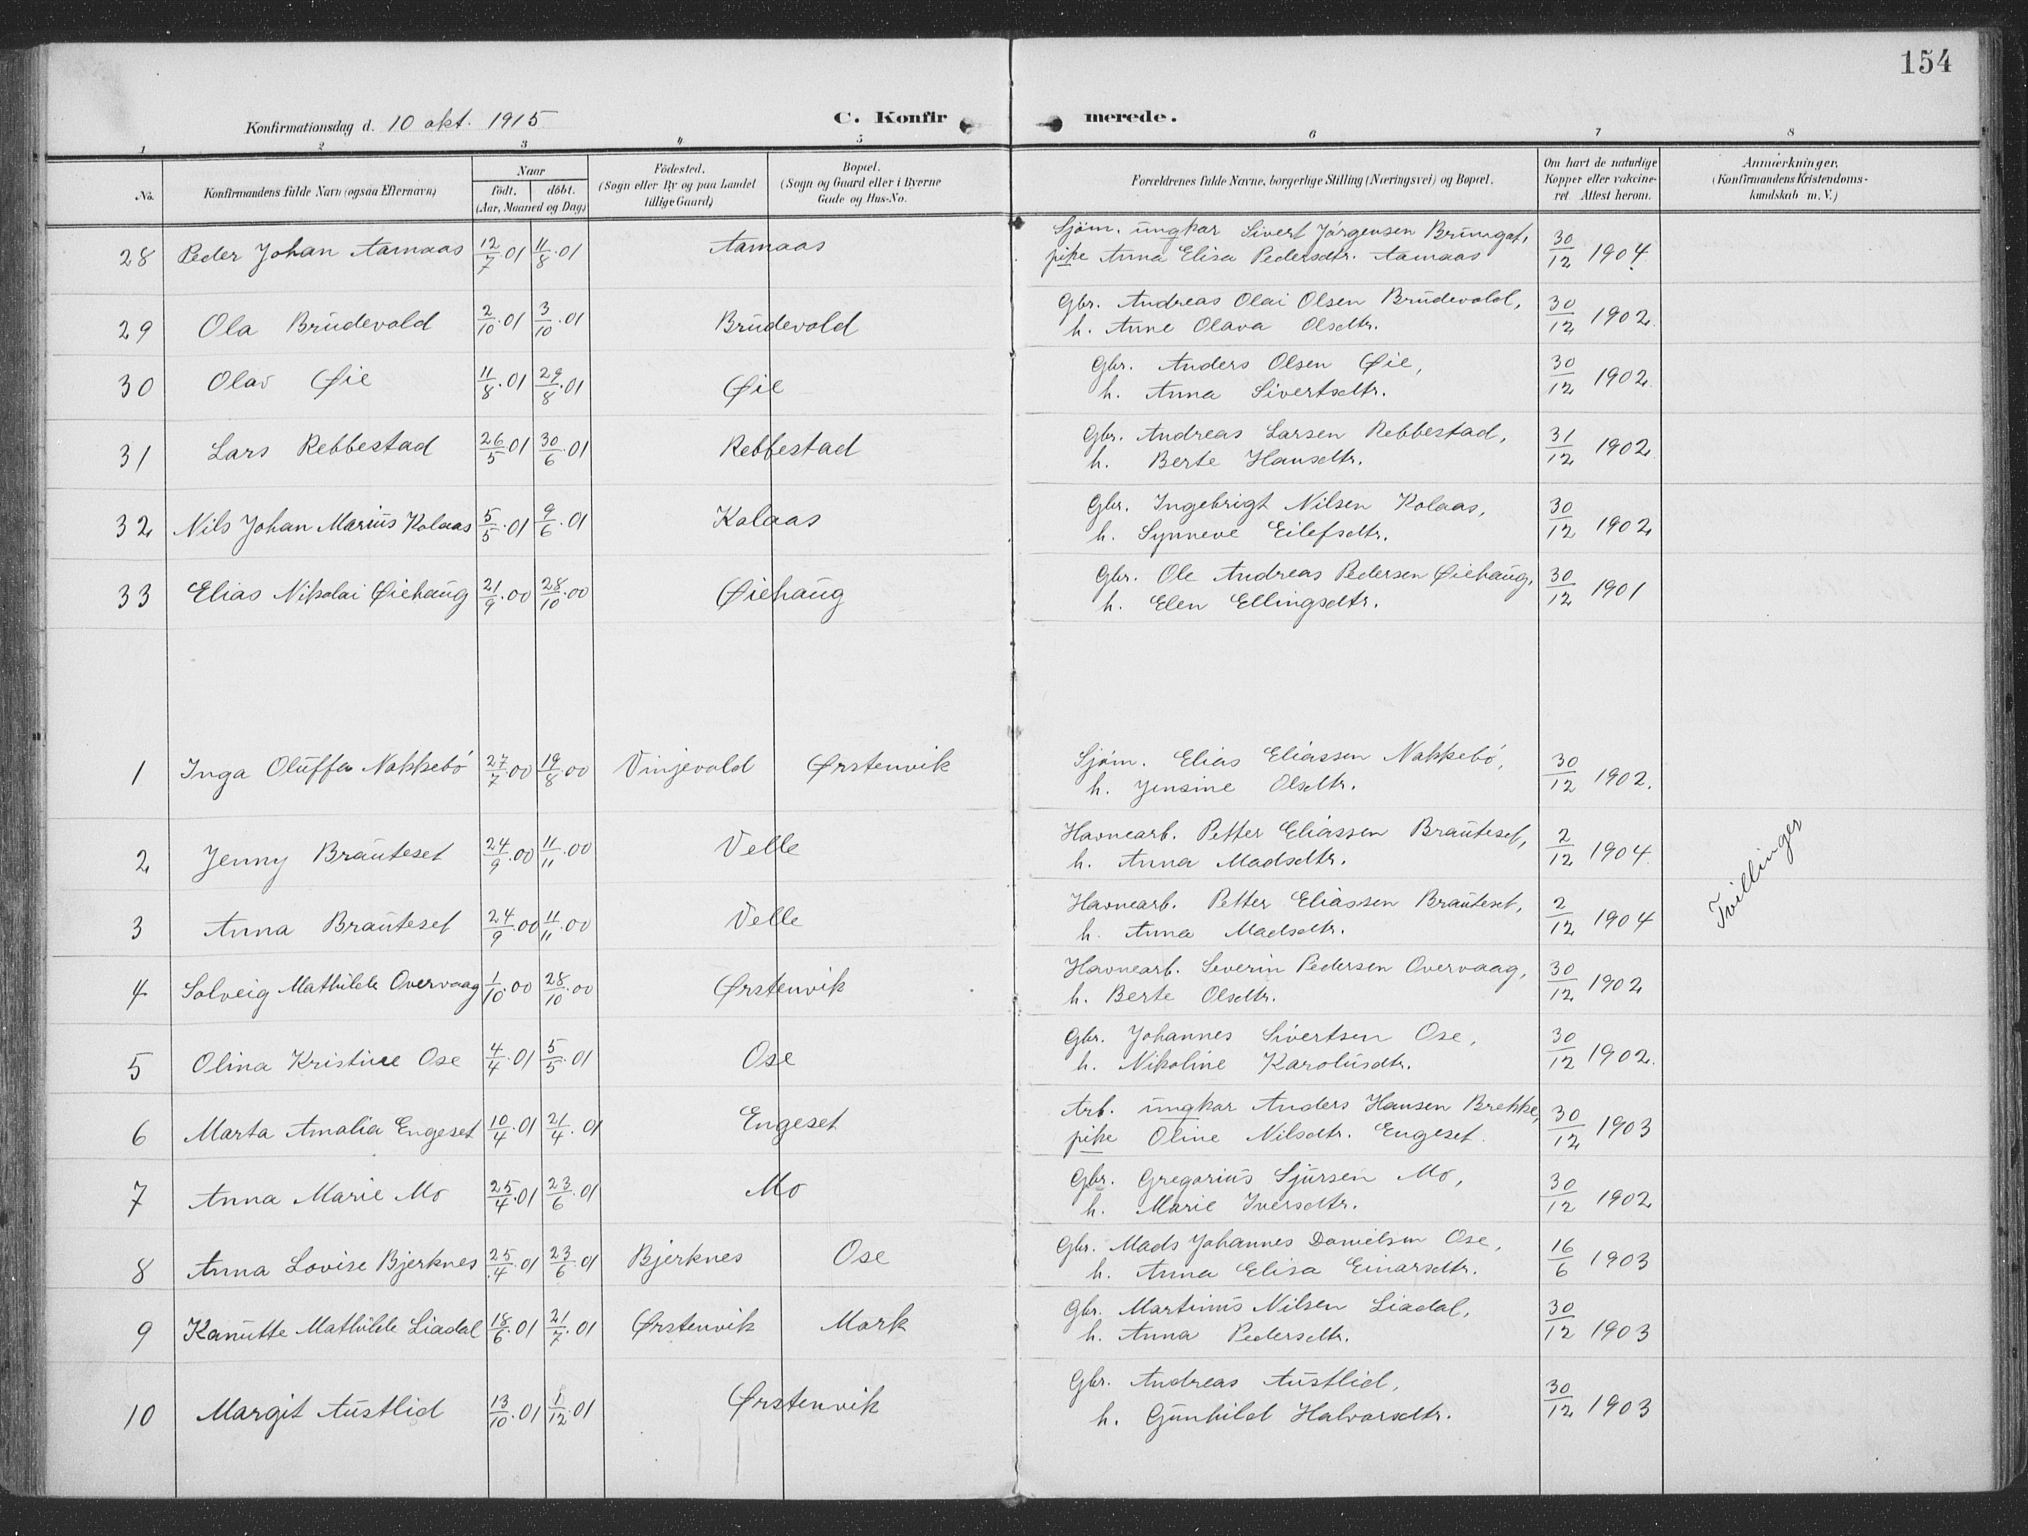 154
Konfirmationsdag d. 10 okt. 1915 C. Konfir merede.
1 2 3 4 5 6 7 8
No. Konfirmandens fulde Navn (ogsaa Efternavn) Naar födt. döbt. (Aar, Maaned og Dag) Födested. (Sogn eller By og paa Landet tillige Gaard) Bopæl. (Sogn og Gaard eller i Byerne Gade og Hus-No. Forældrenes fulde Navne, borgerlige Stilling (Næringsvei) og Bopæl. Om havt de naturlige Kopper eller vakcineret Attest herom. Anmærkninger. (Konfirmandens Kristendomskundskab m. V.)
28 Peder Johan Aamaas 12/7.01 11/8.01 Aamaas Sjøm. ungkar Sivert Jørgensen Brungot, 30/12 1904.
pike Anna Elisa Pedersdtr. Aamaas
29 Ola Brudevold 2/10.01 3/10.01 Brudevold Gbr. Andreas Olai Olsen Brudevold, 30/12 1902.
h. Anne Olava Olsdtr.
30 Olav Øie 11/8.01 29/8.01 Øie Gbr. Anders Olsen Øie, 30/12 1902.
h. Anna Sivertsdtr.
31 Lars Rebbestad 26/5.01 30/6.01 Rebbestad Gbr. Andreas Larsen Rebbestad, 31/12 1902.
h. Berte Hansdtr.
32 Nils Johan Marius Kolaas 5/5.01 9/6.01 Kolaas Gbr. Ingebrigt Nilsen Kolaas, 30/12 1902
h. Synneve Eilefsdtr.
33 Elias Nikolai Øiehaug 21/9.00 28/10.00 Øiehaug Gbr. Ole Andreas Pedersen Øiehaug, 30/12 1901
h. Elen Ellingsdtr.
1 Inga Oluffa Nakkebø 27/7.00 19/8.00 Vinjevold Ørstenvik Sjøm. Elias Eliassen Nakkebø, 30/12 1902.
h. Jensine Olsdtr.
2 Jenny Brauteset 24/9.00 11/11.00 Velle Havnearb. Petter Eliassen Brauteset, 2/12 1904.
h. Anna Madsdtr.
Tvillinger
3 Anna Brauteset 24/9.00 11/11.00 Velle Havnearb. Petter Eliassen Brauteset, 2/12 1904
h. Anna Madsdtr.
4 Solveig Mathilde Overvaag 1/10.00 28/10.00 Ørstenvik Havnearb. Severin Pedersen Overvaag, 30/12 1902
h. Berte Olsdtr.
5 Olina Kristine Ose 4/4.01 5/5.01 Ose Gbr. Johannes Sivertsen Ose, 30/12 1902.
h. Nikoline Karolusdtr.
6 Marta Amalia Engeset 10/4.01 21/4.01 Engeset Arb. ungkar Anders Hansen Brekke, 30/12 1903
pike Oline Nilsdtr. Engeset.
7 Anna Marie Mo 25/4.01 23/6.01 Mo Gbr. Gregorius Sjursen Mo, 30/12 1902
h. Marie Iversdtr.
8 Anna Lovise Bjerknes 25/4.01 23/6.01 Bjerknes Ose Gbr. Mads Johannes Danielsen Ose, 16/6 1903
h. Anna Elisa Einarsdtr.
9 Kanutte Mathilde Liadal 18/6.01 21/7.01 Ørstenvik Mork Gbr. Martinus Nilsen Liadal, 30/12 1903
h. Anna Pedersdtr.
10 Margit Austlid 13/10.01 1/12.01 Ørstenvik Gbr. Andreas Austlid, 30/12 1903
h. Gunhild Halvarsdtr.